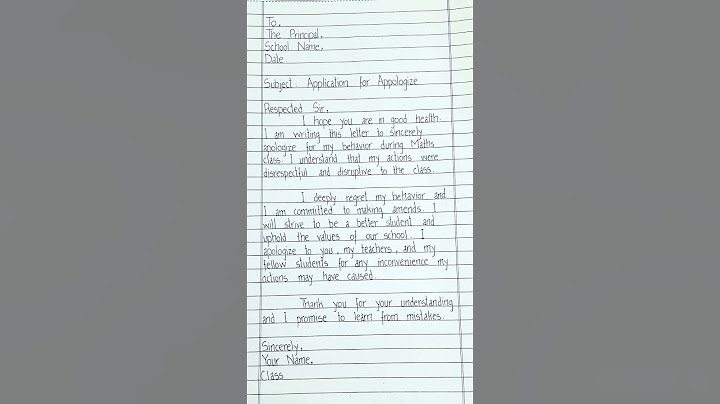 To,
The Principal,
School Name,
Date
Subject: Application for Appologize
Respected Sir,
I hope you are in good health.
I am writing this letter to sincerely
apologize for my behavior during Maths
class. I understand that my actions were
disrespectful and disruptive to the class.
I deeply regret my behavior and
I am committed to making amends. I
will strive to be a better student and
uphold the values of our school. I
apologize to you, my teachers, and my
fellow students for any inconvenience my
actions may have caused.
Thank you for your understanding
and I promise to learn from mistakes.
Sincerely,
Your Name,
Class